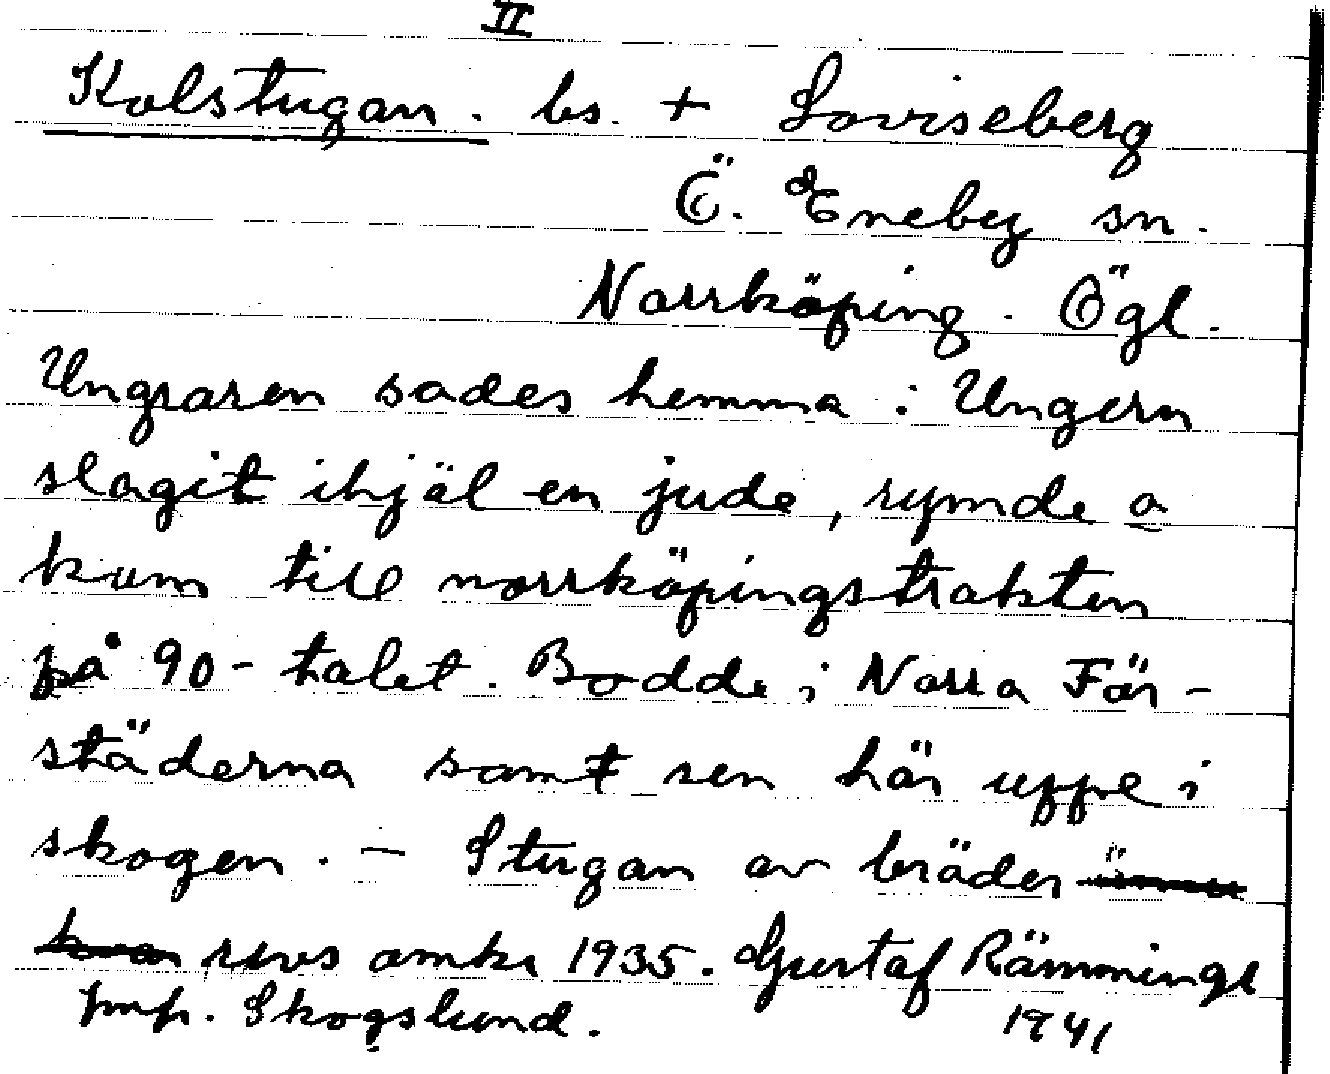 II
Kolstugan. bs. + Loviseberg
Ö. Eneby sn.
Norrköping. Ögl.
Ungraren sades hemma i Ungern
slagit ihjäl en jude, rymde o
kom till norrköpingstrakten
på 90-talet. Bodde i Norra För-
städerna samt sen här uppe i
skogen. - Stugan av bräder ännu
kvar revs omkr 1935. Gustaf Rämmingl
pmp. Skogslund. 1941